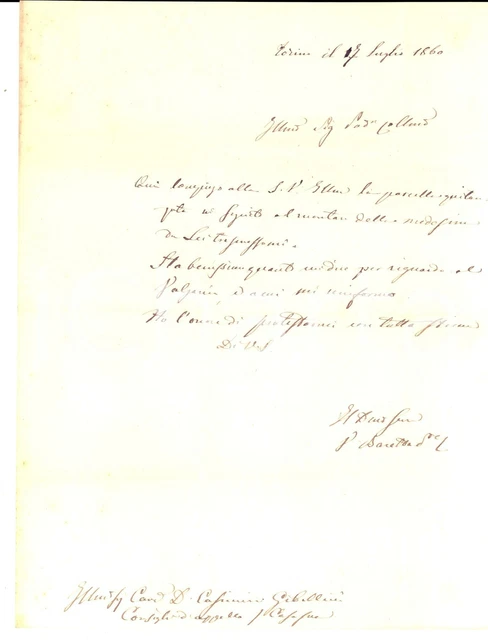 Torino il 17 Luglio 1860
Illmo Sig Padn Collmo
Qui compiego alla S. V. Illma la parcella quitan
zata in seguito al montare della medesima
da Lei trasmessomi.
Sta benissimo quanto mi dice per riguardo al
e a cui mi uniformo.
Ho l'onore di protestarmi con tutta stima
Di V. S.
Il Dmo Servo
Illmo Sig Cave D. Casimiro Gibellini
Consigliere d'appello